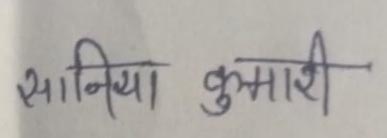 सानिया कुमारी